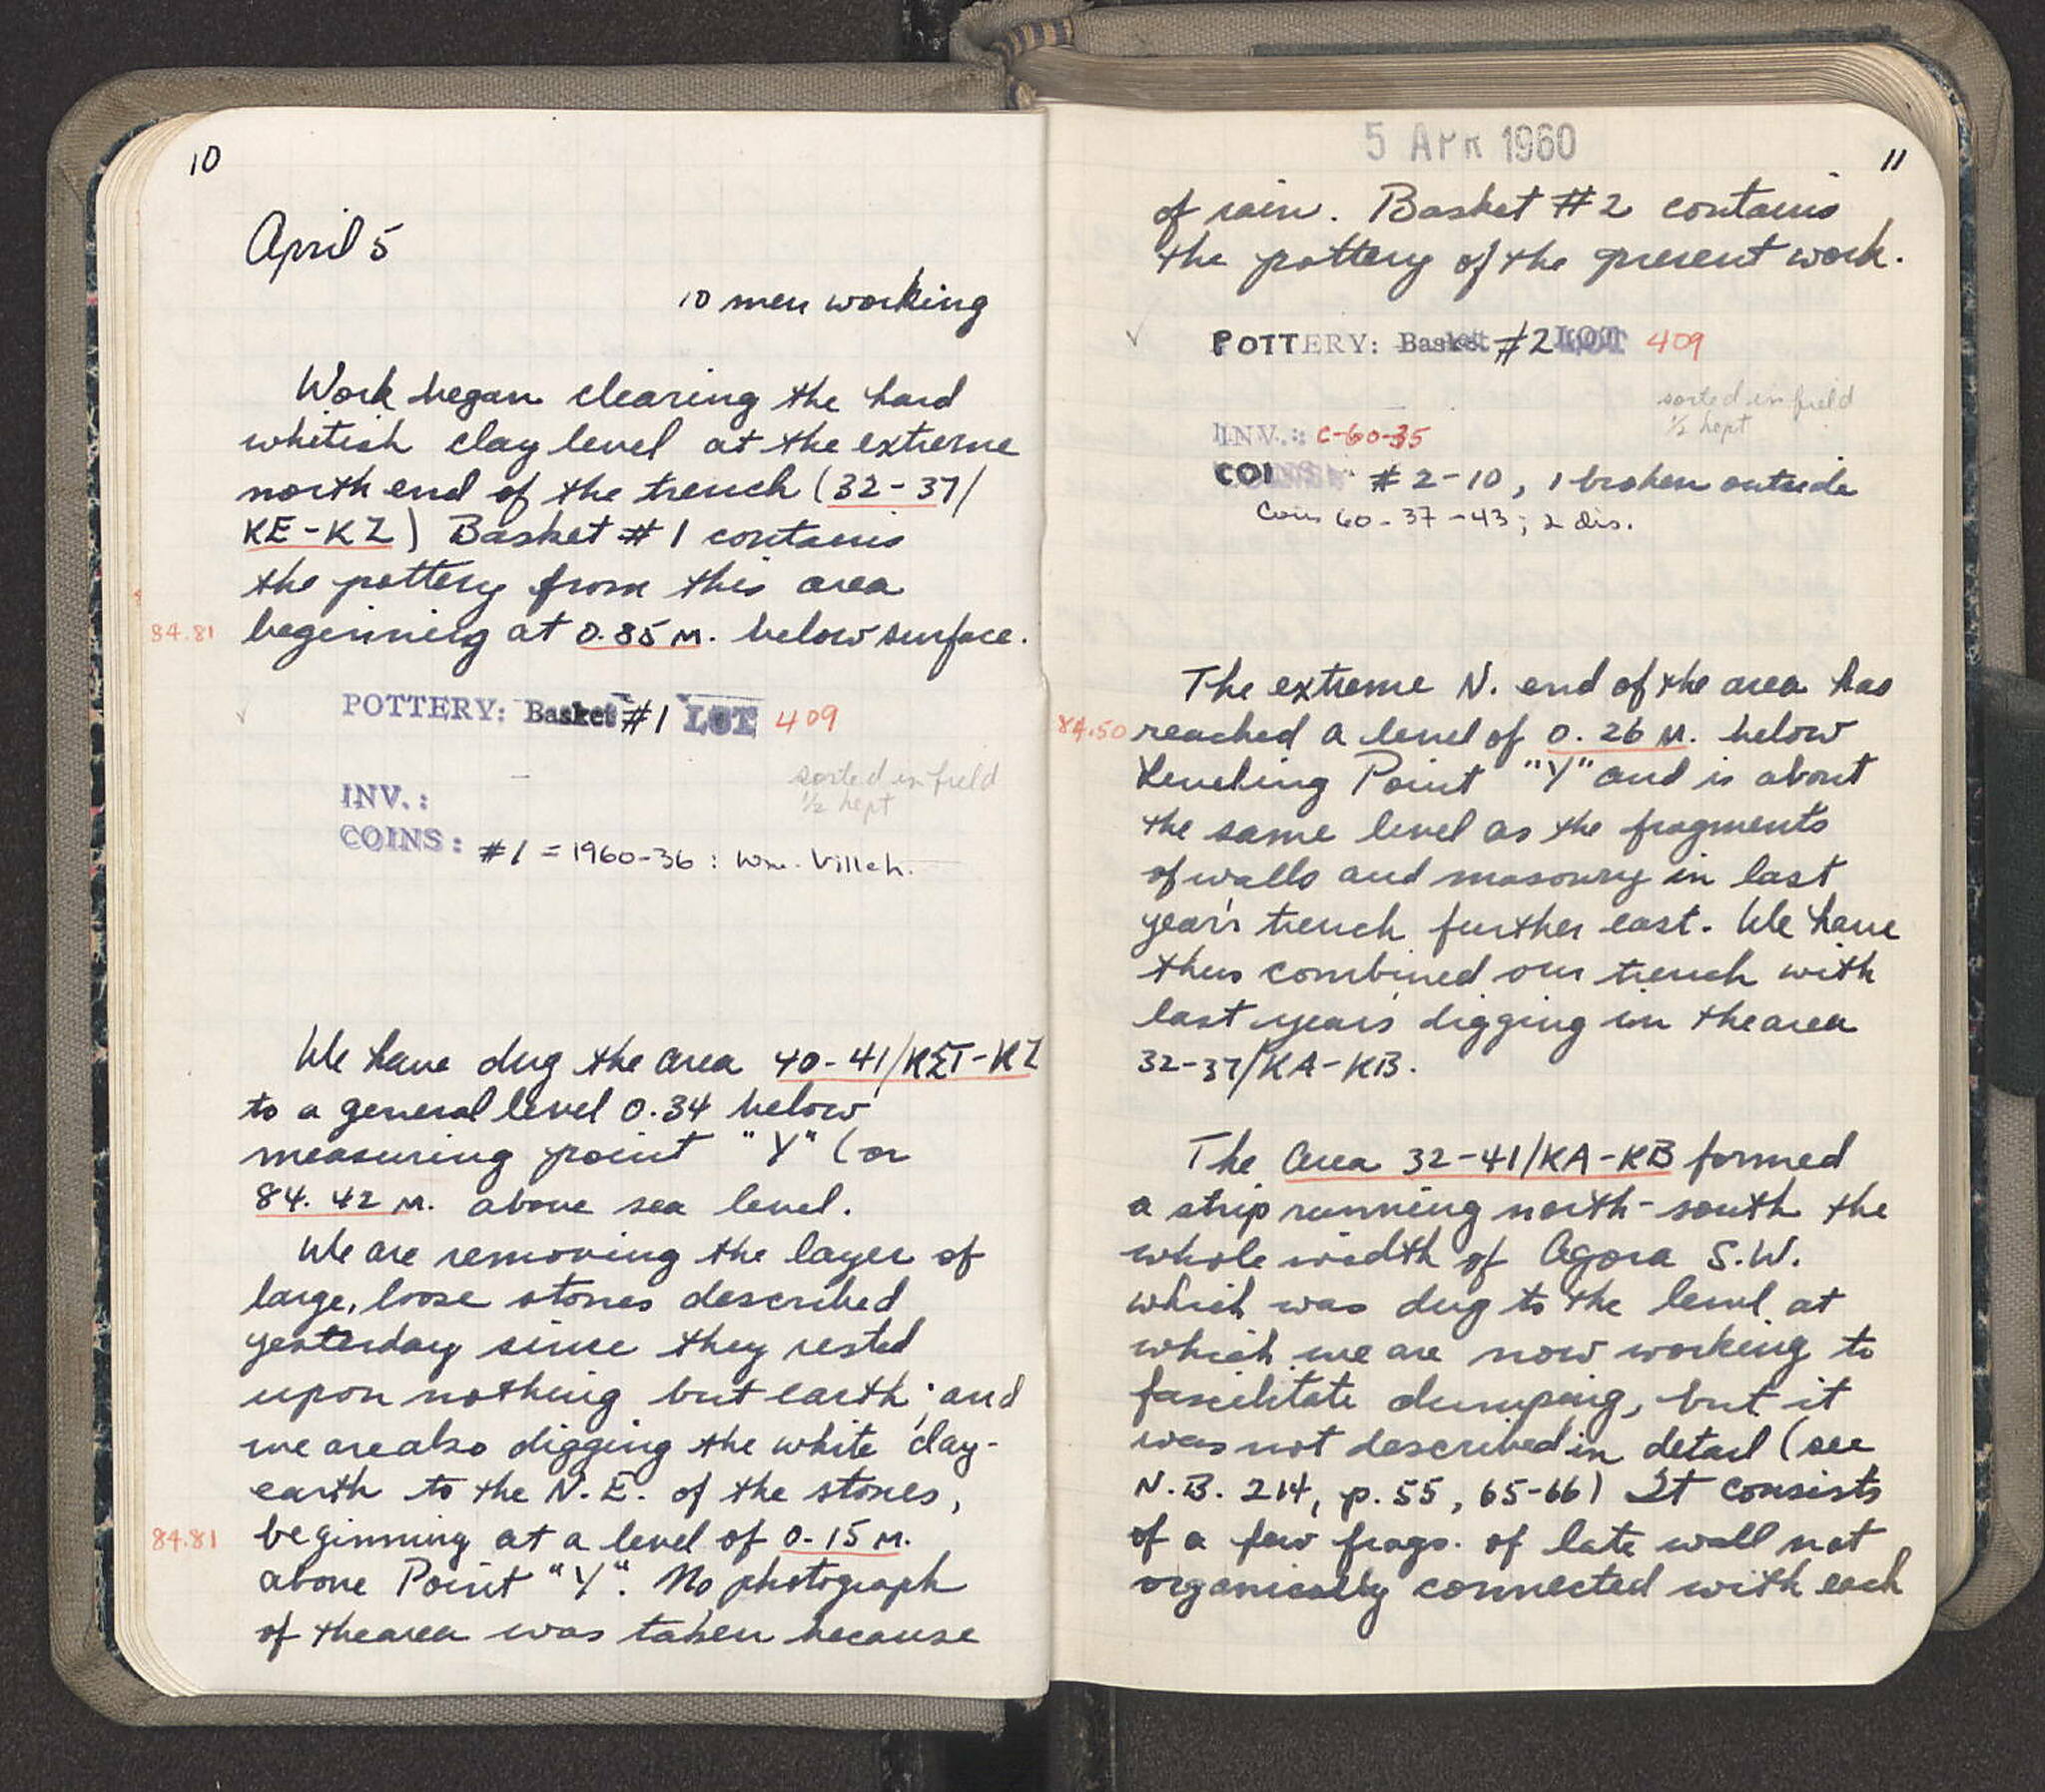 10
April 5
10 men working
Work began clearing the hard
whitish clay level at the extreme
north end of the trench (32-37/
KE-KZ) Basket #1 contains
the pottery from this area
84.81 beginning at 0.85 M. below surface.
POTTERY: Basket #1 LOT 409
sorted in field
½ kept
INV.:
COINS: #1 = 1960-36: Wm. Villeh.
We have dug the area 40-41/KΣT-KZ
to a general level 0.34 below
measuring point "Y" (or
84.42 M. above sea level.
We are removing the layer of
large, loose stones described
yesterday since they rested
upon nothing but earth; and
we are also digging the white clay-
earth to the N.E. of the stones,
84.81 beginning at a level of 0.15 M.
above Point "Y". No photograph
of the area was taken because
5 APR 1960
11
of rain. Basket #2 contains
the pottery of the present work.
POTTERY: Basket #2 LOT 409
sorted in field
½ kept
INV.: C-60-35
COINS: #2-10, 1 broken outside
Coins 60-37-43; 2 dis.
The extreme N. end of the area has
84.50 reached a level of 0.26 M. below
Leveling Point "Y" and is about
the same level as the fragments
of walls and masonry in last
year's trench further east. We have
thus combined our trench with
last year's digging in the area
32-37/KA-KB.
The Area 32-41/KA-KB formed
a strip running north-south the
whole width of Agora S.W.
which was dug to the level at
which we are now working to
fascilitate dumping, but it
was not described in detail (see
N.B. 214, p. 55, 65-66) It consists
of a few frags. of late wall not
organically connected with each